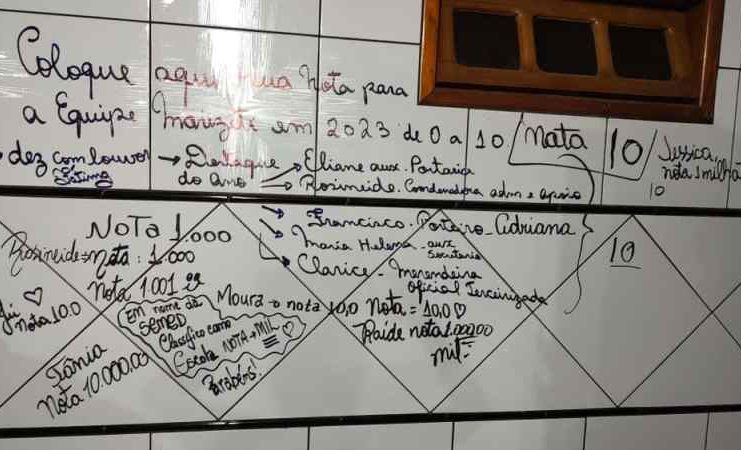 Coloque aqui sua Nota para
a Equipe Marizete em 2023 de 0 a 10
Nata
10
Jessica
nota 1 milhão
10
dez com louvor
Fátima
→ Destaque
do ano
→ Eliane aux. Portaria
→ Rosineide. Coordenadora adm e apoio
→ Francisco. Porteiro - Adriana
→ Maria Helena - aux
Secretaria
→ Clarice - Merendeira
Oficial Terceirizada
10
NoTa 1.000
Rosineide = nota: 1.000
Nota 1.001
♡
nota 10.0
Tânia
Nota 10.000.00
Em nome da
SEMED
Classifico como
Escola NOTA → MIL ♡
Parabéns!
Moura → nota 10,0
Nota = 10,0 ♡
Raide nota 1.000,00
mil